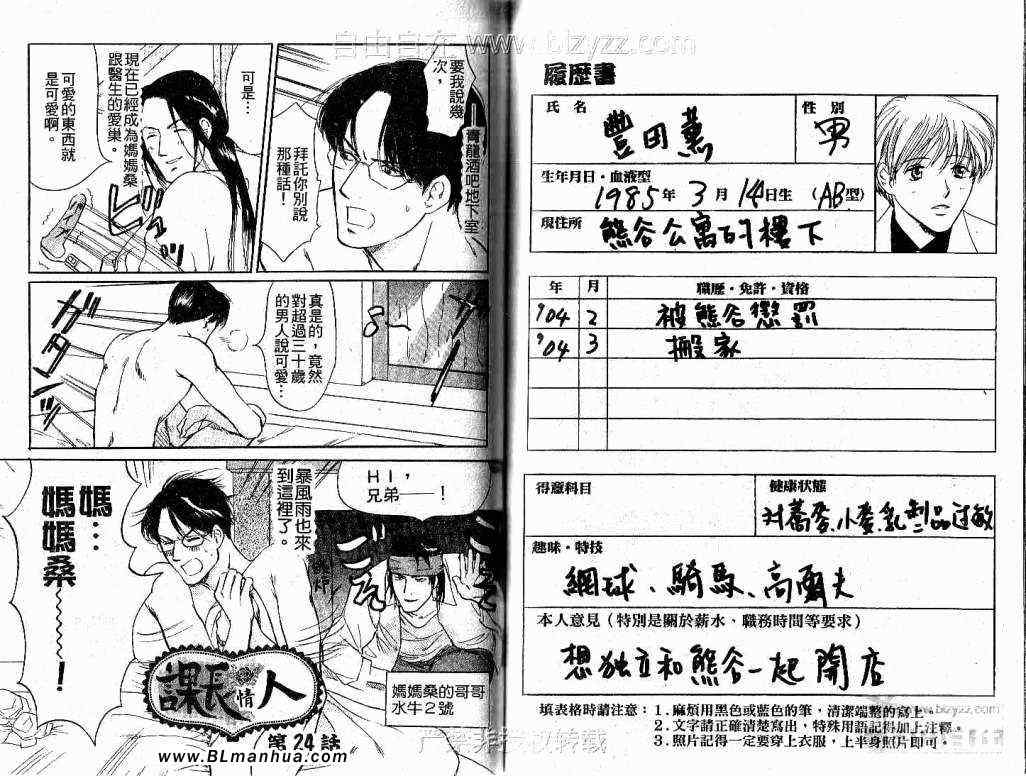 自由自在 www.blzyzz.com
履歷書
氏 名
性 別
豐田薰
男
生年月日・血液型
1985年 3月 14日生 (AB型)
現住所
熊谷公寓的樓下
年 月 職歷・免許・資格
'04 2 被熊谷懲罰
'04 3 搬家
得意科目
健康狀態
对蕎麥、小麥、乳製品过敏
趣味・特技
網球、騎馬、高爾夫
本人意見(特別是關於薪水、職務時間等要求)
想独立和熊谷一起開店
填表格時請注意:1.麻煩用黑色或藍色的筆,清潔端整的寫上。
2.文字請正確清楚寫出,特殊用語記得加上注釋。
3.照片記得一定要穿上衣服,上半身照片即可。
青龍酒吧地下室
要我說幾
次,
拜託你別說
那種話!
可是…
現在已經成為媽媽桑
跟醫生的愛巢
可愛的東西就
是可愛啊。
真是的,竟然
對超過三十歲
的男人說可愛…
HI,
兄弟——!
暴風雨也來
到這裡了。
媽…
媽媽桑~~~!
媽媽桑的哥哥
水牛2號
課長情人
第24話
www.BLmanhua.com
严禁非授权转载